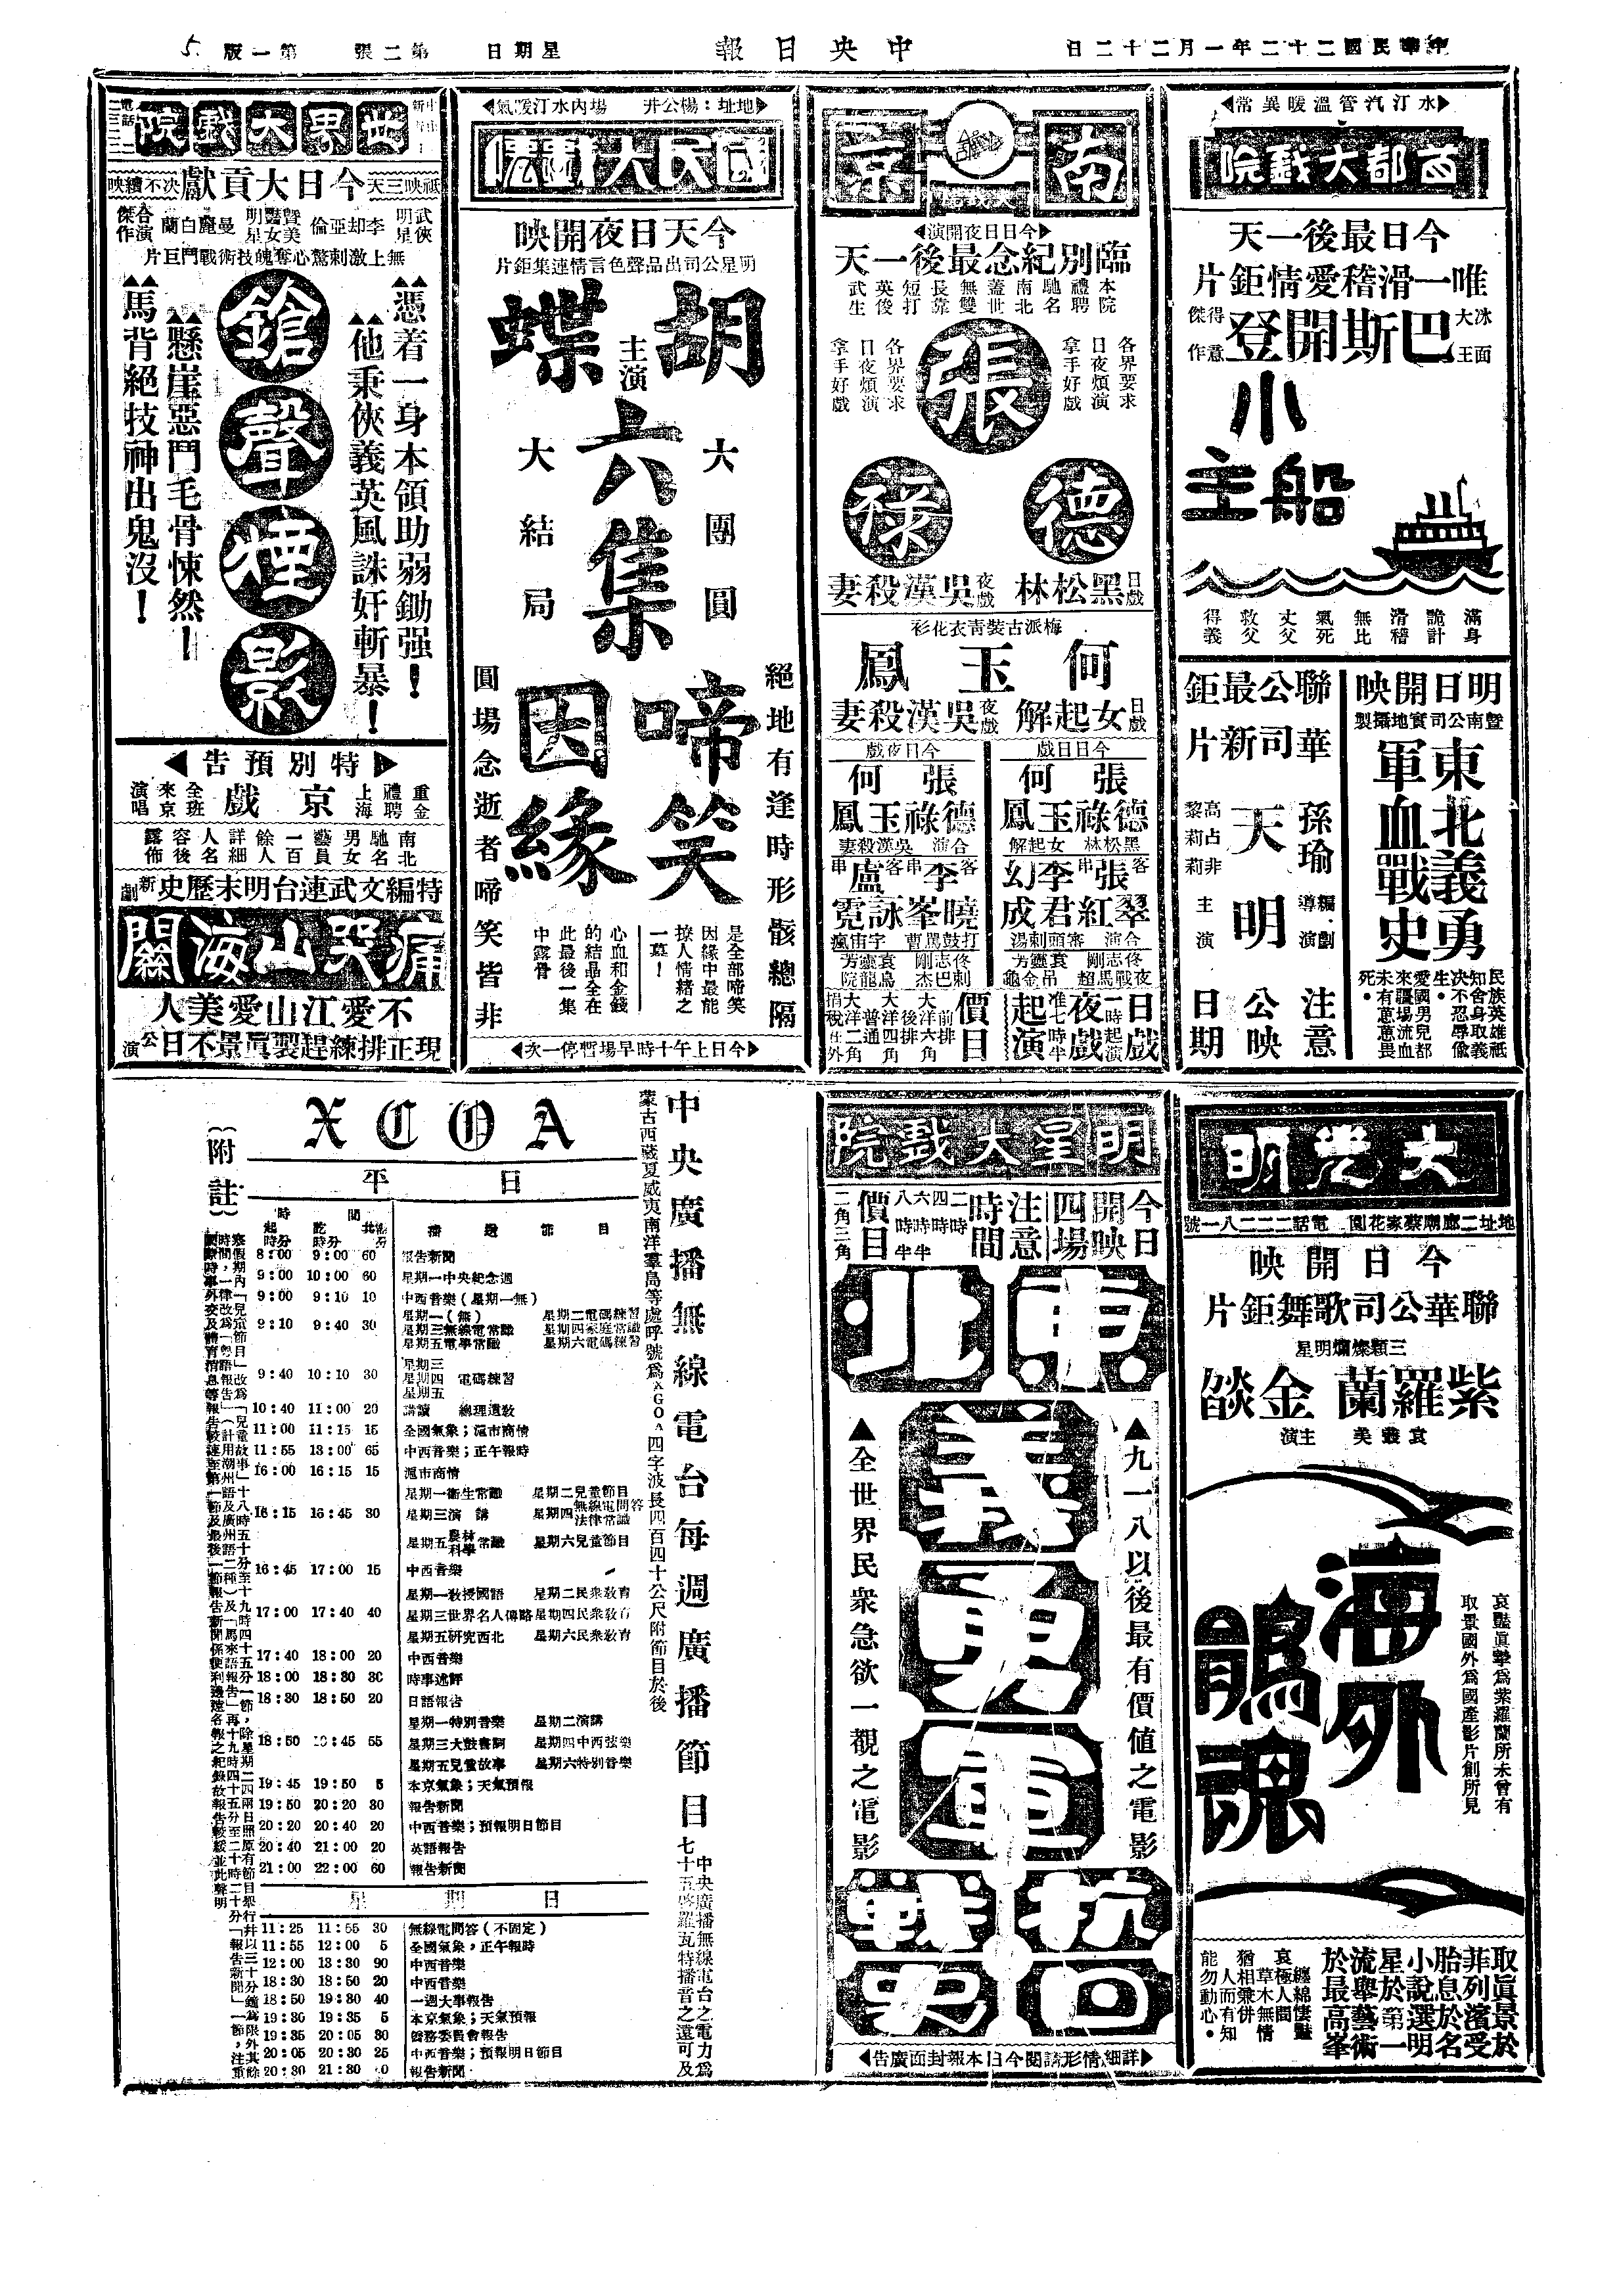 中華民國二十二年一月二十二日
中央日報
星期日
第二張
第一版
5
水汀汽管溫暖異常
首都大戲院
今日最後一天
唯一滑稽愛情鉅片
冰面大王
巴斯開登
得意傑作
小船主
滿身詭計
滑稽無比
氣死丈父
救父得義
明日開映
暨南公司實地攝製
東北義勇軍血戰史
民族英雄祇知舍身取義
決不忍辱偷生
愛國男兒都來疆場流血
未有葸葸畏死
聯華公司最新鉅片
孫瑜編劇導演
天明
高占非
黎莉莉
主演
注意公映日期
南京
今日日夜開演
臨別紀念最後一天
本院禮聘馳名南北蓋世無雙長靠短打英俊武生
各界要求日夜煩演拿手好戲
各界要求日夜煩演拿手好戲
張德祿
日戲黑松林
夜戲吳漢殺妻
梅派古裝青衣花彩
何玉鳳
日戲女起解
夜戲吳漢殺妻
今日日戲
張德祿
何玉鳳
黑松林
女起解
客串張翠紅
李君
幻成
合演
審頭刺湯
佟志剛
袁靈芳
夜戰馬超
吊金龜
今日夜戲
張德祿
何玉鳳
合演
吳漢殺妻
客串李曉峯
串盧詠霓
打鼓罵曹
宇宙瘋
佟志剛
袁靈芳
刺巴杰
烏龍院
日戲一時起演
夜戲准七時半起演
價目
前排大洋六角
後排大洋四角
普通大洋二角
捐稅在外
地址：楊公井
場內水汀暖氣
國民大戲院
今天日夜開映
明星公司出品聲色言情連集鉅片
胡蝶
主演
六集
大團圓
大結局
啼笑因緣
絕地有逢時形骸總隔
圓場念逝者啼笑皆非
是全部啼笑因緣中最能撩人情緒之一幕！
心血和金錢的結晶全在此最後一集中露骨
今日上午十時早場暫停一次
世界大戲院
今日大貢獻
祇映三天
決不續映
武俠明星
李却亞倫
賢美艷女明星
曼麗白蘭
合演傑作
無上激刺驚心奪魄技術戰鬥巨片
憑着一身本領助弱鋤强！
他秉俠義英風誅奸斬暴！
鎗聲煙影
懸崖惡鬥毛骨悚然！
馬背絕技神出鬼沒！
特別預告
重金禮聘上海
京戲
全班來京演唱
南北馳名男女藝員一百餘人詳細人名容後露佈
特編文武連台明末歷史新劇
痛哭山海關
不愛江山愛美人
現正排練趕製眞景不日公演
大光明
地址二廊廟蔡家花園
電話二二二八一號
今日開映
聯華公司歌舞鉅片
三顆燦爛明星
紫羅蘭
金燄
袁叢美
主演
海外鵑魂
哀豔眞摯爲紫羅蘭所未曾有
取景國外爲國產影片創所見
取眞景於菲列濱受胎息於名小說選明星於第一流舉藝術於最高峯
纏綿悽豔
哀極人間
草木無情
猶相兼併
人而有知
能勿動心
明星大戲院
今日開映四場
注意時間
二時
四時
六時半
八時半
價目
二角
三角
東北義勇軍抗日戰史
▲九一八以後最有價値之電影
▲全世界民衆急欲一觀之電影
詳細情形請閱今日本報封面廣告
中央廣播無線電台每週廣播節目
中央廣播無線電台之電力爲七十五啓羅瓦特播音之遠可及
蒙古西藏夏威夷南洋羣島等處呼號爲XGOA四字波長四百四十公尺附節目於後
XCOA
平日
時間
起 時分
訖 時分
共計 分
播送節目
8:00 9:00 60 報告新聞
9:00 10:00 60 星期一中央紀念週
9:00 9:10 10 中西音樂（星期一無）
9:10 9:40 30 星期一（無） 星期二電碼練習
星期三無線電常識 星期四家庭常識
星期五電學常識 星期六電碼練習
9:40 10:10 30 星期三
星期四 電碼練習
星期五
10:40 11:00 20 講讀 總理遺敎
11:00 11:15 15 全國氣象；滬市商情
11:55 13:00 65 中西音樂；正午報時
16:00 16:15 15 滬市商情
16:15 16:45 30 星期一衛生常識 星期二兒童節目
星期三演講 星期四無線電問答 法律常識
星期五農林科學常識 星期六兒童節目
16:45 17:00 15 中西音樂
17:00 17:40 40 星期一敎授國語 星期二民衆敎育
星期三世界名人傳略 星期四民衆敎育
星期五研究西北 星期六民衆敎育
17:40 18:00 20 中西音樂
18:00 18:30 30 時事述評
18:30 18:50 20 日語報告
18:50 19:45 55 星期一特別音樂 星期二演講
星期三大鼓書詞 星期四中西弦樂
星期五兒童故事 星期六特別音樂
19:45 19:50 5 本京氣象；天氣預報
19:50 20:20 30 報告新聞
20:20 20:40 20 中西音樂；預報明日節目
20:40 21:00 20 英語報告
21:00 22:00 60 報告新聞
星期日
11:25 11:55 30 無線電問答（不固定）
11:55 12:00 5 全國氣象，正午報時
12:00 13:30 90 中西音樂
18:30 18:50 20 中西音樂
18:50 19:30 40 一週大事報告
19:30 19:35 5 本京氣象；天氣預報
19:35 20:05 30 僑務委員會報告
20:05 20:30 25 中西音樂；預報明日節目
20:30 21:30 報告新聞
（附註）